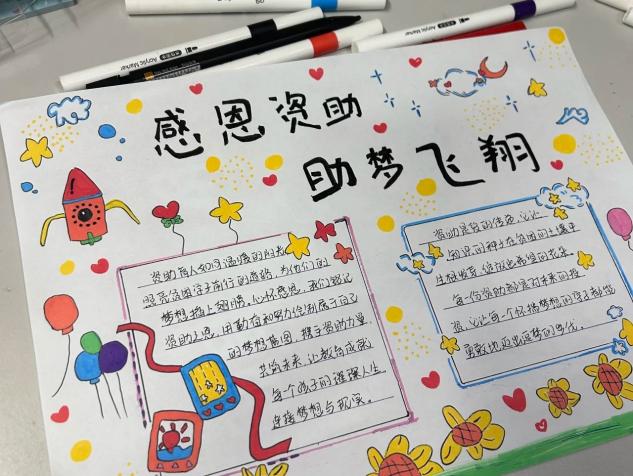 Acrylic Marker
Acrylic Marker
Acrylic Marker
感恩资助
助梦飞翔
资助育人如同温暖的阳光
照亮贫困学子前行的道路,为他们的
梦想插上翅膀,心怀感恩,我们铭记
资助之恩,用勤奋和努力绘制属于自己
的梦想蓝图,携手资助力量,
共筑未来,让教育成就
每个孩子的璀璨人生,
连接梦想与现实。
资助是爱的传递,它让
知识的种子在贫困的土壤里
生根发芽,绽放出希望的花朵
每一份资助都是对未来的投
资,它让每个怀揣梦想的孩子都能
勇敢地迈出逐梦的步伐。